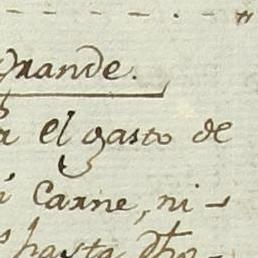 Grande.
a el gasto de
i Carne, ni-
s hasta dho-